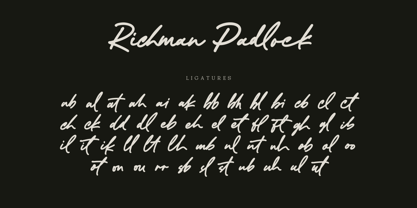 Richman Padlock
LIGATURES
ab al at ah ai ak bb bh bl bi cb cl ct
ch ck dd dl eb eh el et fl ft gh gl ib
il it ik ll lt lh mb ul nt nh ob ol oo
ot on ou rr sb sl st ub uh ul ut